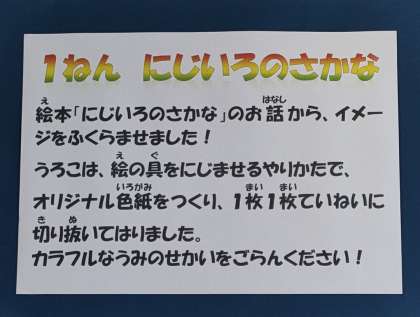 １ねん　にじいろのさかな
絵本「にじいろのさかな」のお話から、イメー
ジをふくらませました！
うろこは、絵の具をにじませるやりかたで、
オリジナル色紙をつくり、１枚１枚ていねいに
切り抜いてはりました。
カラフルなうみのせかいをごらんください！